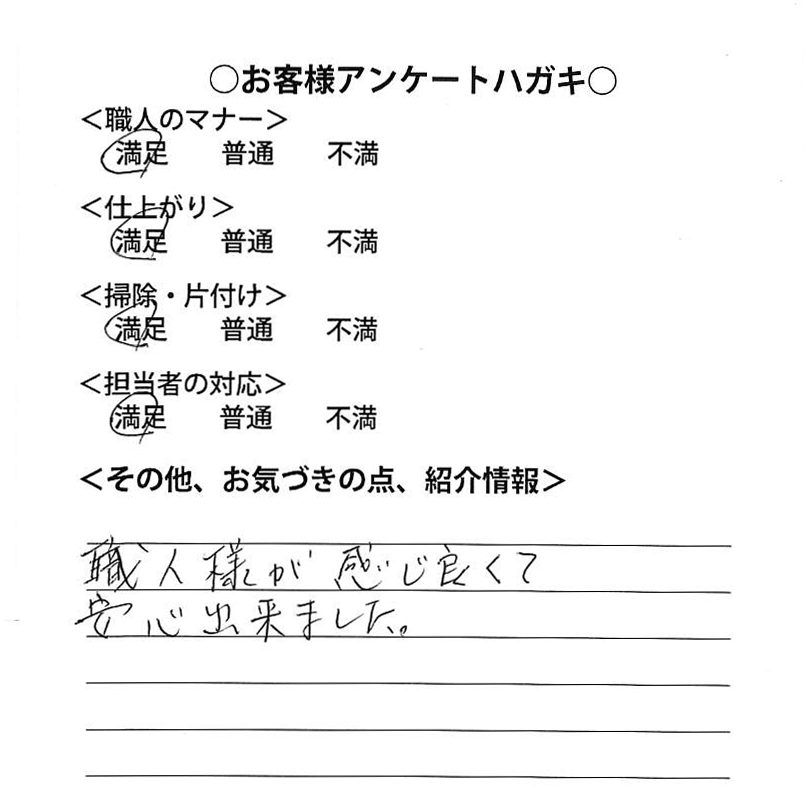 ○お客様アンケートハガキ○
＜職人のマナー＞
満足 普通 不満
＜仕上がり＞
満足 普通 不満
＜掃除・片付け＞
満足 普通 不満
＜担当者の対応＞
満足 普通 不満
＜その他、お気づきの点、紹介情報＞
職人様が感じ良くて
安心出来ました。